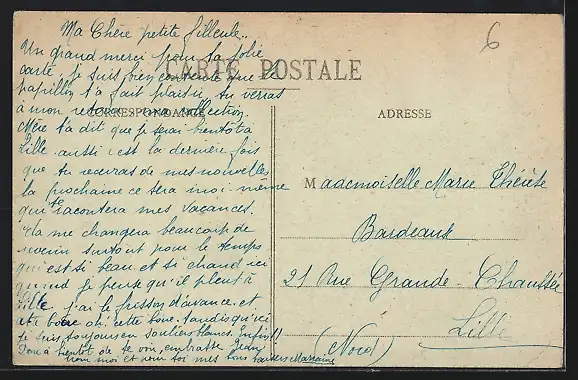 Ma Chère petite filleule..
Un grand merci pour ta jolie
carte, je suis bien contente que le
papillon t'a fait plaisir, tu verras
à mon retour ma collection.
Mère t'a dit que je serai bientôt à
Lille aussi c'est la dernière fois
que tu recevras de mes nouvelles
la prochaine ce sera moi-même
qui te racontera mes vacances.
Ça me changera beaucoup de
revenir surtout pour le temps
qui est si beau et si chaud ici
quand je pense qu'il pleut à
Lille, j'ai le frisson d'avance. et
boue oh! cette boue. tandis qu'ici
je suis toujours en souliers blancs. Enfin!!
Donc à bientôt de te voir, embrasse Jean
pour moi et pour toi mes bons baisers Marraine
CARTE POSTALE
CORRESPONDANCE
ADRESSE
6
Mademoiselle Marie Thérèse
Bardeaux
21 Rue Grande-Chaussée
Lille
(Nord)